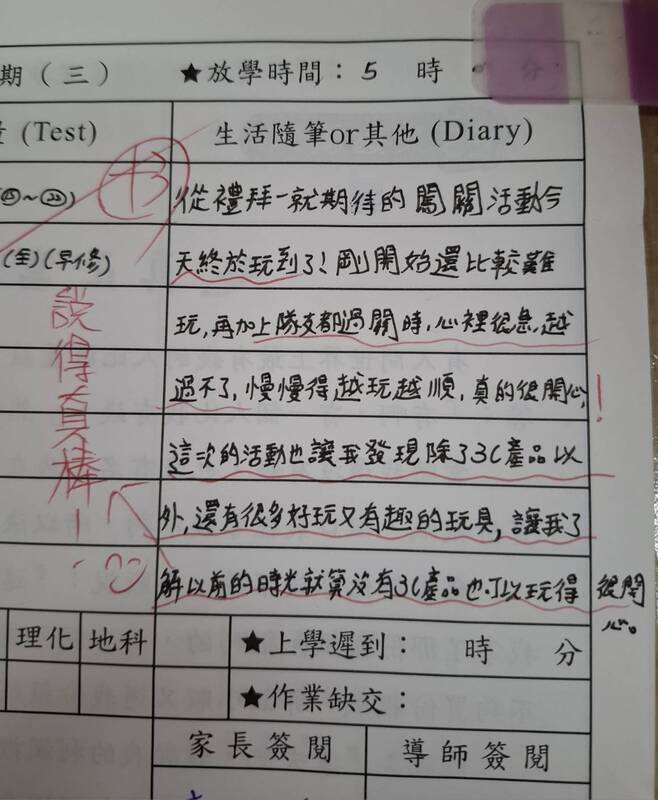 期(三)
★放學時間：5 時 0 分
(Test)
生活隨筆or其他 (Diary)
+3
從禮拜一就期待的闖關活動今
(早修)
天終於玩到了！剛開始還比較難
玩,再加上隊友都過關時,心裡很急,越
過不了,慢慢得越玩越順,真的很開心,
!
這次的活動也讓我發現除了3C產品以
外,還有很多好玩又有趣的玩具,讓我了
解以前的時光就算沒有3C產品也可以玩得很開
心。
說得真棒!
理化
地科
★上學遲到： 時 分
★作業缺交：
家長簽閱
導師簽閱